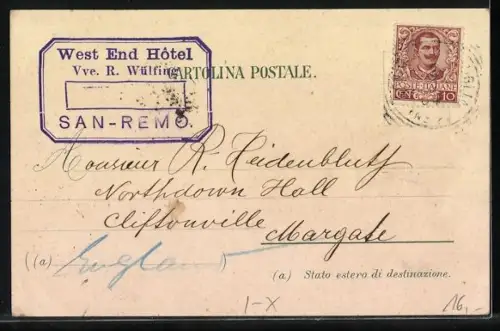 West End Hôtel
Vve. R. Wülfing
SAN-REMO.
CARTOLINA POSTALE.
POSTE ITALIANE
CEN 10
Monsieur R. Heidenbluth
Northdown Hall
Cliftonville
Margate
((a) England)
(a.) Stato estero di destinazione.
I-X
16,-